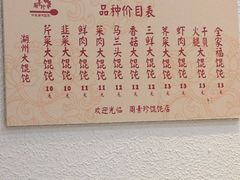 品种价目表
湖州大馄饨
芹菜大馄饨 10元
韭菜大馄饨 10元
鲜肉大馄饨 11元
菜肉大馄饨 11元
马兰头大馄饨
香菇大馄饨
三鲜大馄饨
荠菜大馄饨
虾肉大馄饨 13元
火腿干贝大馄饨 13元
全家福馄饨 13元
欢迎光临 周素珍馄饨店